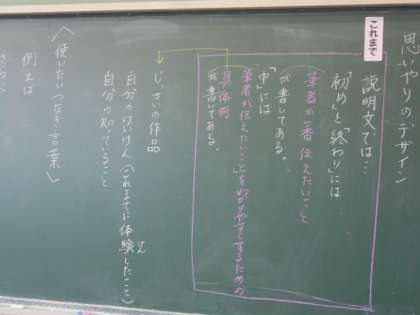 思いやりのデザイン
これまで
説明文では…
「初め」と「終わり」には
筆者が一番伝えたいこと
が書してある。
「中」には
筆者が伝えたいことをわかりやすくするための
具体例
が書してある。
じっさいの作品
自分のけいけん(これまでに体験したこと)
けん
自分の知っていること
〈使いたいつなぎ言葉〉
例えば
さらに